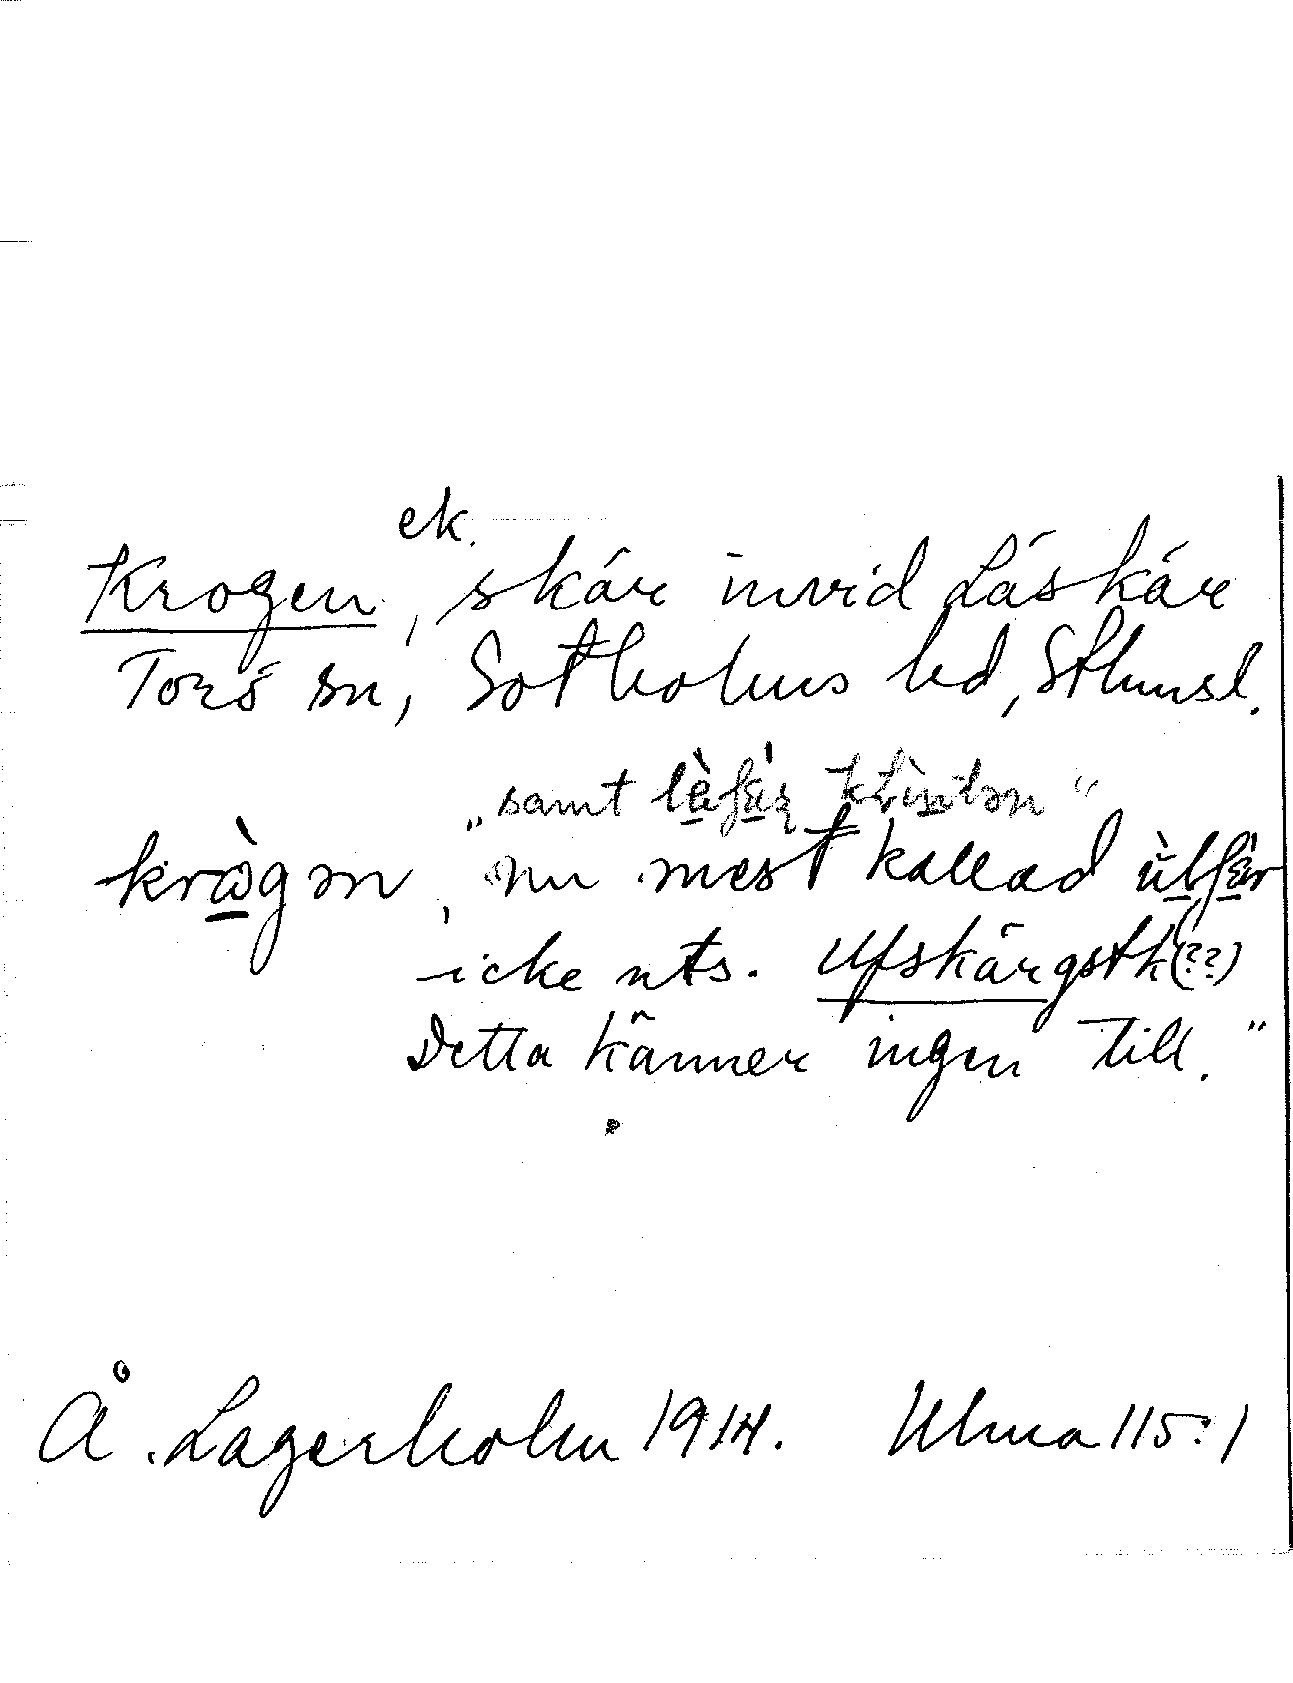 ek.
Krogen, skär invid Låskär
Torö sn, Sotholms hd, Sthmsl.
„samt
krògən, nu mest kallad
icke uts. Ufskärgsth(??)
Detta känner ingen till."
Å. Lagerholm 1914. Ulma 115:1